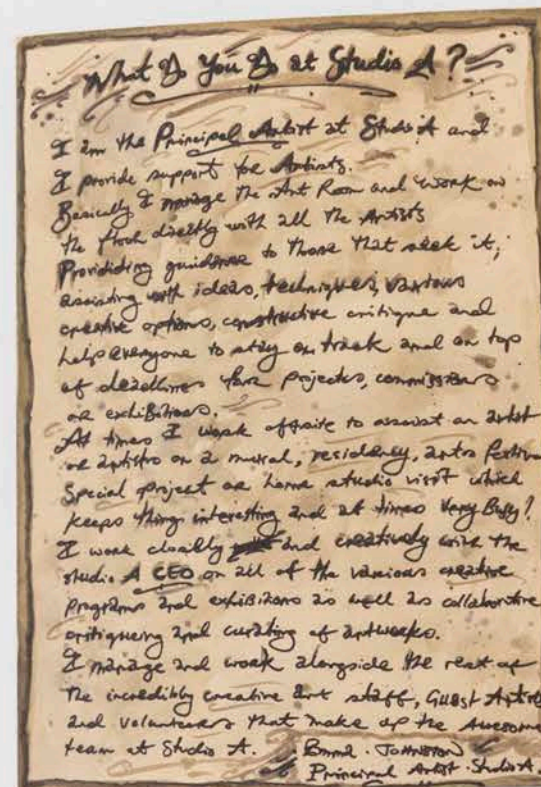 What Do You Do at Studio A?
I am the Principal Artist at Studio A and
I provide support for Artists.
Basically I manage the Art Room and work on
the floor directly with all the Artists
Provididing guidance to those that seek it,
assisting with ideas, techniques, various
creative options, constructive critique and
help everyone to stay on track and on top
of deadlines for projects, commissions
or exhibitions.
At times I work offsite to assist an artist
or artists on a mural, residency, arts festival
Special project or home studio visit which
keeps things interesting and at times Very Busy!
I work closely and creatively with the
studio A CEO on all of the various creative
programs and exhibitions as well as collaborative
critiqueing and curating of artworks.
I manage and work alongside the rest of
the incredibly creative art staff, Guest Artists
and volunteers that make up the Awesome
team at Studio A.
Johnston
Principal Artist · Studio A.